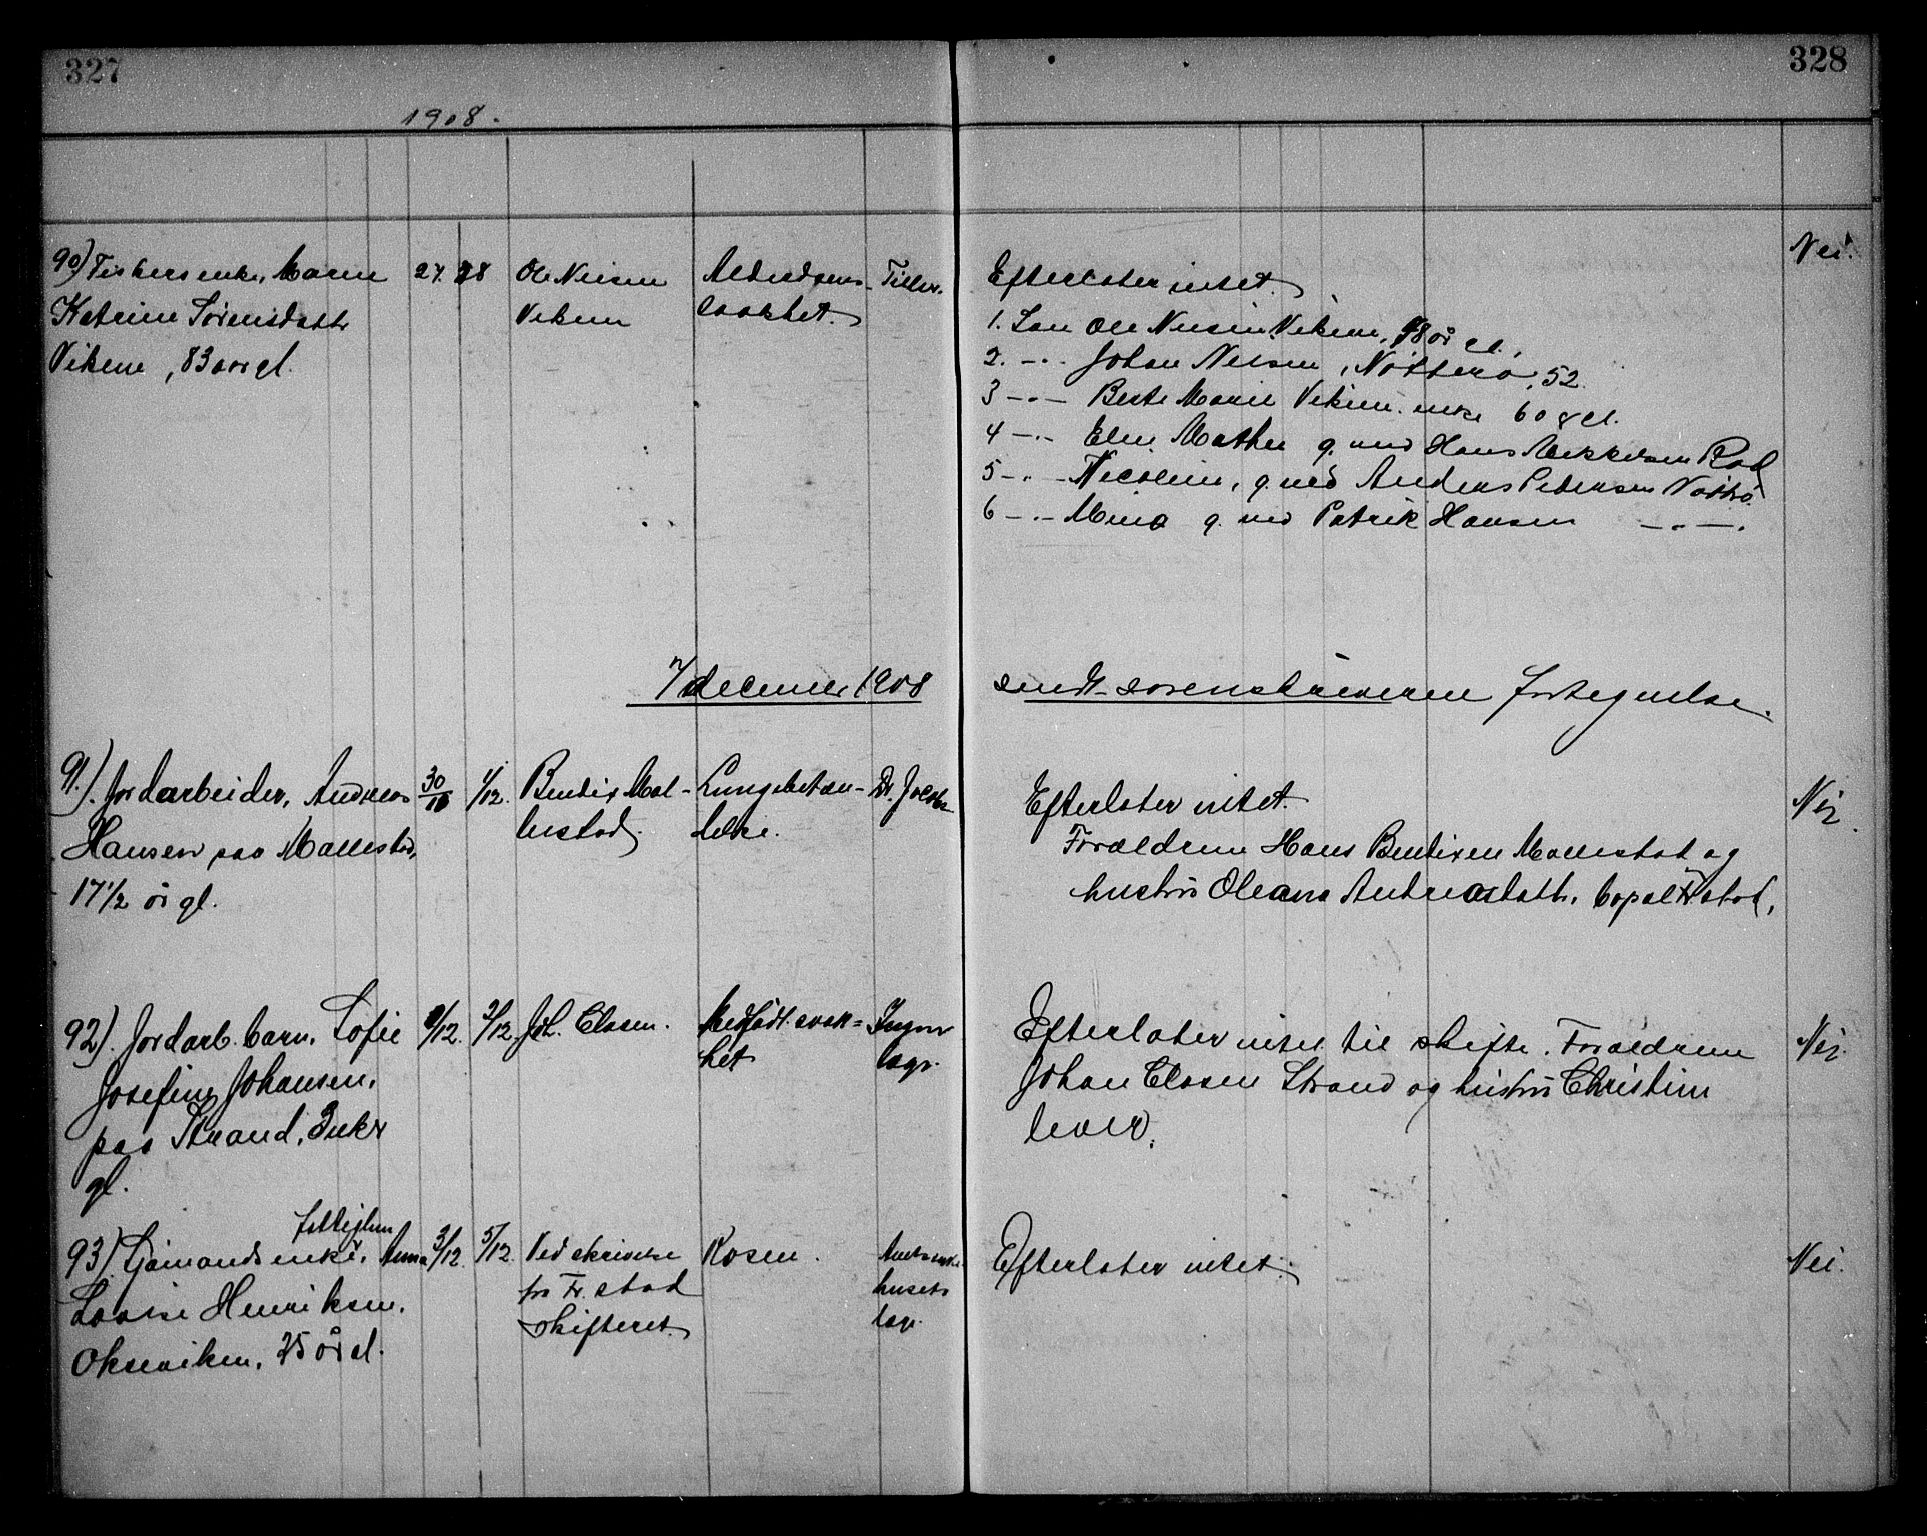 327
328
1908.
90) Fiskersenke, Maren
Katrine Sørensdatt.
Vikene, 83 aar gl.
27. 28
Ole Nilsen
Vikene
Alderdoms-
svakhet.
Tillv.
Efterlater intet.
1. Søn Ole Nilsen Vikene, 48 år gl.,
2. -"- Johan Nilsen, Nøtterø, 52
3 -"- Berte Marie Vikene enke 60 år gl.
4 -"- Elen Mathea g. med Hans Mikkelsen Rød
5 -"- Nicoline, g. med Anders Pedersen Nøtterø.
6 -"- Mina g. med Patrik Hansen -"-.
Nei.
7/ december 1908
sendt sorenskriveren fortegnelse.
91.). Jordarbeider, Andreas
Hansen paa Mallestad,
17 1/2 år gl.
30/11
1/12.
Bendix Mal-
lestad.
Lungebetæn-
delse.
Dr.
Efterlater intet.
Forældrene Hans Bendixen Mallestad og
hustru Oleana Andreasdatt. bopæl Fr.stad.
Nej.
92). Jordarb. barn, Sofie
Josefine Johansen.
paa Strand, 3 uker
gl.
/12.
2/12.
Joh. Clasen.
Medfødt svak=
het
Ingen
læge.
Efterlater intet til skifte. Forældrene
Johan Clasen Strand og hustru Christine
lever.
Nej.
93). Sjømands enke, fattiglem Anna
Lovise Henriksen.
Okseviken, 75 år gl.
3/12.
5/12.
Ved skrivelse
fra Fr. stad
skifteret.
Rosen.
husets
læge.
Efterlater intet.
Nei.